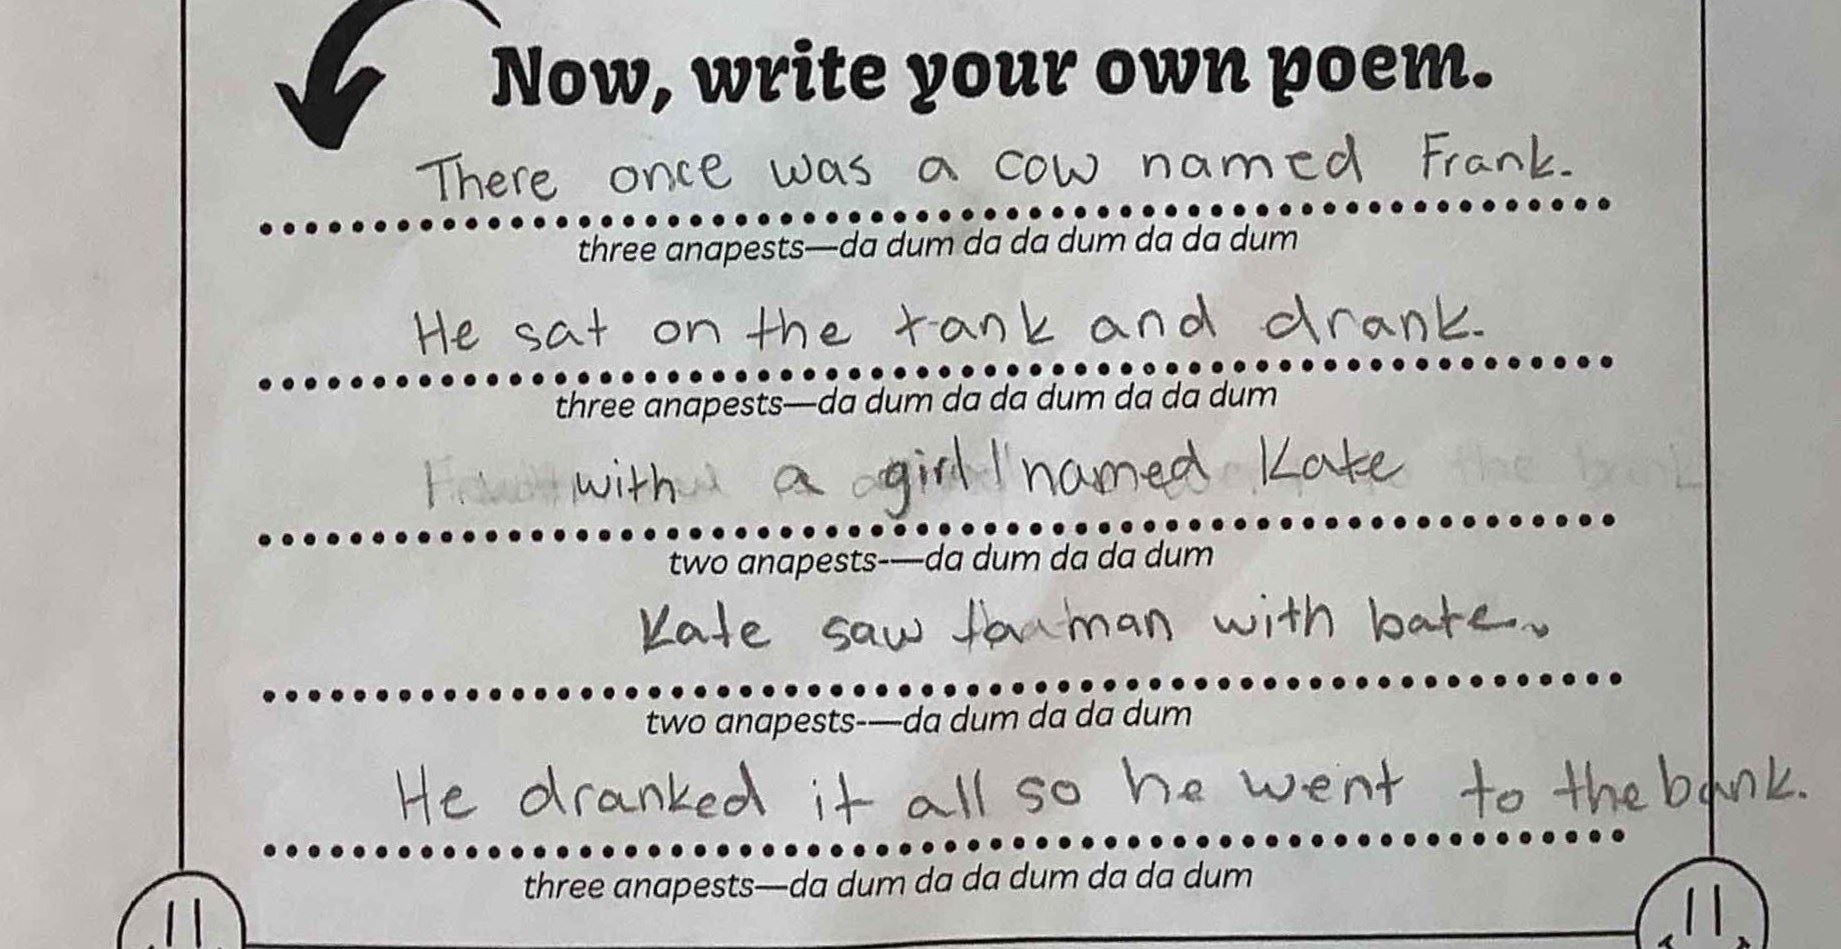 Now, write your own poem.
There once was a cow named Frank.
three anapests—da dum da da dum da da dum
He sat on the tank and drank.
three anapests—da dum da da dum da da dum
with a girl named Kate
two anapests-—da dum da da dum
Kate saw a man with bate.
two anapests-—da dum da da dum
He dranked it all so he went to the bank.
three anapests—da dum da da dum da da dum